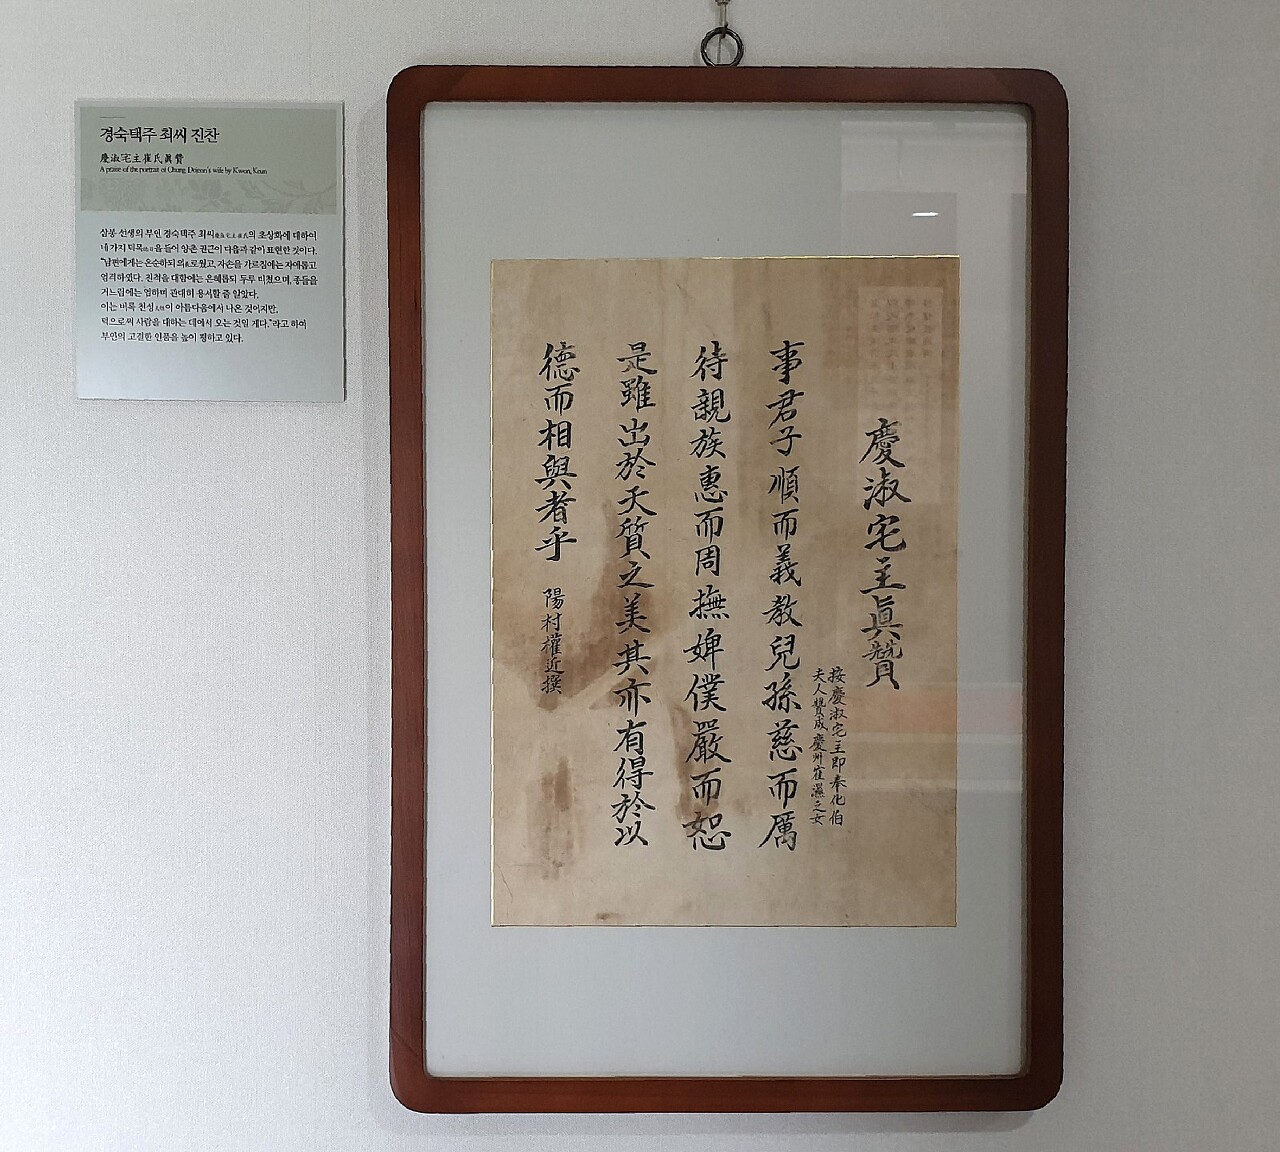 경숙택주 최씨 진찬
慶淑宅主崔氏眞贊
A praise of the portrait of Chung, Dojeon's wife by Kwon, Keun
삼봉 선생의 부인 경숙택주 최씨慶淑宅主崔氏의 초상화에 대하여
네 가지 덕목德目을 들어 양촌 권근이 다음과 같이 표현한 것이다.
"남편에게는 온순하되 의義로웠고, 자손을 가르침에는 자애롭고
엄격하였다. 친척을 대함에는 은혜롭되 두루 미쳤으며, 종들을
거느림에는 엄하며 관대히 용서할 줄 알았다.
이는 비록 천성天性이 아름다움에서 나온 것이지만,
덕으로써 사람을 대하는 데에서 오는 것일 게다."라고 하여
부인의 고결한 인품을 높이 평하고 있다.
慶淑宅主眞贊
按慶淑宅主即奉化伯
夫人贊成慶州崔濕之女
事君子順而義教兒孫慈而厲
待親族惠而周撫婢僕嚴而恕
是雖出於天質之美其亦有得於以
德而相與者乎 陽村權近撰